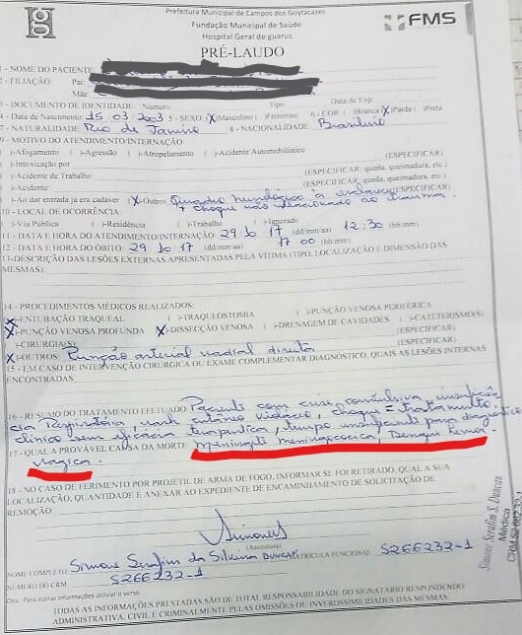 Prefeitura Municipal de Campos dos Goytacazes
Fundação Municipal de Saúde
Hospital Geral de guarus
FMS
PRÉ-LAUDO
1 - NOME DO PACIENTE
2 - FILIAÇÃO: Pai:
Mãe
3 - DOCUMENTO DE IDENTIDADE Número Tipo Data de Exp
4 - Data de Nascimento 15.03.2003 5 - SEXO: (X)Masculino ( )Feminino 6 - COR ( )Branca (X)Parda ( )Preta
7 - NATURALIDADE Rio de Janeiro 8 - NACIONALIDADE Brasileiro
9 - MOTIVO DO ATENDIMENTO/INTERNAÇÃO:
( )-Afogamento ( )-Agressão ( )-Atropelamento ( )-Acidente Automobilístico
( )-Intoxicação por (ESPECIFICAR)
( )-Acidente de Trabalho (ESPECIFICAR: queda, queimadura, etc.)
( )-Acidente: (ESPECIFICAR: queda, queimadura, etc.)
( )-Ao dar entrada já era cadáver (X)-Outros Quadro neurológico à (ESPECIFICAR)
+ choque não relacionado ao trauma.
10 - LOCAL DE OCORRÊNCIA:
( )-Via Pública ( )-Residência ( )-Trabalho ( )-Ignorado
11 - DATA E HORA DO ATENDIMENTO/INTERNAÇÃO 29 10 17 (dd/mm/aa) 12:30 (hh:mm)
12 - DATA E HORA DO ÓBITO: 29 10 17 (dd/mm/aa) 17 00 (hh:mm)
13 - DESCRIÇÃO DAS LESÕES EXTERNAS APRESENTADAS PELA VÍTIMA (TIPO, LOCALIZAÇÃO E DIMENSÃO DAS
MESMAS):
14 - PROCEDIMENTOS MÉDICOS REALIZADOS:
(X)-ENTUBAÇÃO TRAQUEAL ( )-TRAQUEOSTOMIA ( )-PUNÇÃO VENOSA PERIFÉRICA
(X)-PUNÇÃO VENOSA PROFUNDA (X)-DISSECÇÃO VENOSA ( )-DRENAGEM DE CAVIDADES ( )-CATETERISMO(S)
( )-CIRURGIA(S) (ESPECIFICAR)
(X)-OUTROS Punção arterial radial direita (ESPECIFICAR)
15 - EM CASO DE INTERVENÇÃO CIRURGICA OU EXAME COMPLEMENTAR DIAGNÓSTICO, QUAIS AS LESÕES INTERNAS
ENCONTRADAS
16 - RESUMO DO TRATAMENTO EFETUADO Paciente com crise convulsiva, insuficiên
cia Respiratória, rash cutâneo violáceo, choque = tratamento
clínico sem eficácia terapêutica, tempo insuficiente para diagnóstico
17 - QUAL A PROVÁVEL CAUSA DA MORTE Meningite Meningocócica, Dengue hemor
rágica.
18 - NO CASO DE FERIMENTO POR PROJETIL DE ARMA DE FOGO, INFORMAR SE FOI RETIRADO, QUAL A SUA
LOCALIZAÇÃO, QUANTIDADE E ANEXAR AO EXPEDIENTE DE ENCAMINHAMENTO DE SOLICITAÇÃO DE
REMOÇÃO:
(Assinatura)
NOME COMPLETO Simone Serafim da Silveira DUNCAN MATRÍCULA FUNCIONAL 5266232-1
NÚMERO DO CRM 5266232-1
Simone Serafim S. Duncan
Médica
CRM 5266232-1
Obs. Para outras informações utilizar o verso
TODAS AS INFORMAÇÕES PRESTADAS SÃO DE TOTAL RESPONSABILIDADE DO SIGNATÁRIO RESPONDENDO
ADMINISTRATIVA, CIVIL E CRIMINALMENTE PELAS OMISSÕES DE INVERDISIBILIDADES DAS MESMAS.